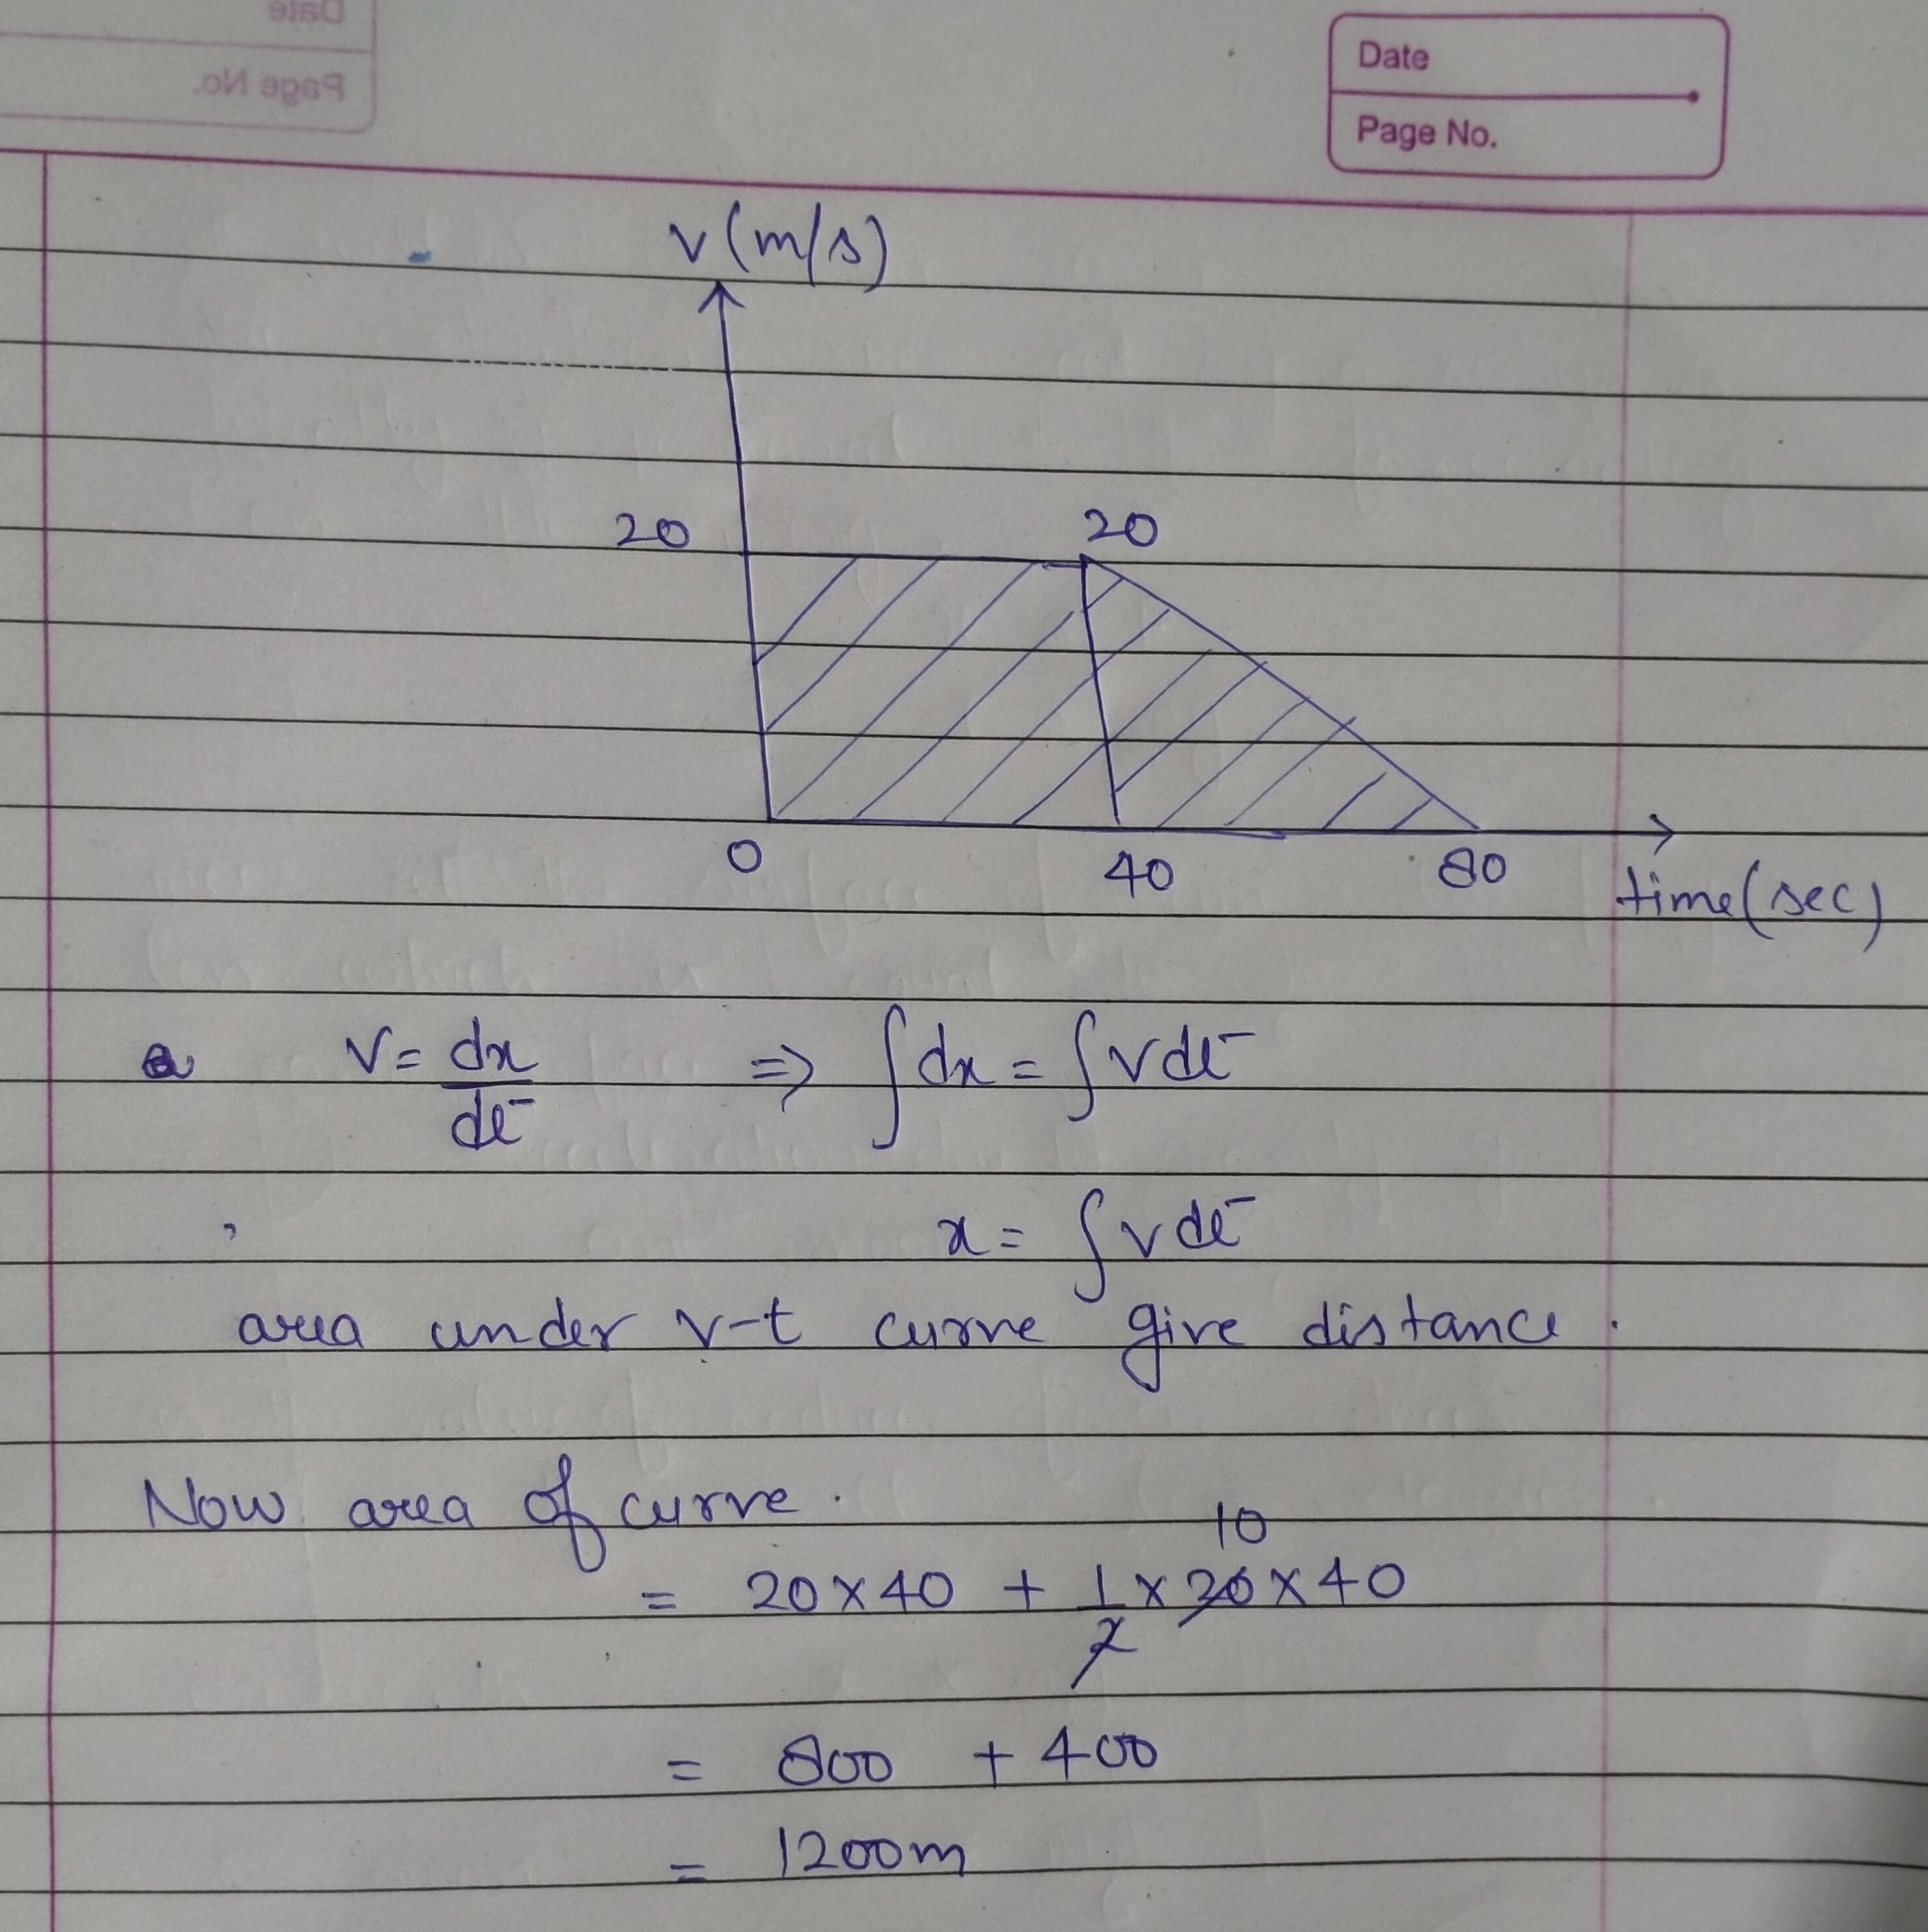 Date
Page No.
Date
Page No.
v(m/s)
20 20
0 40 80 time(sec)
V = dx/dt ⇒ ∫dx = ∫vdt
x = ∫vdt
area under v-t curve give distance.
Now area of curve.
10
= 20×40 + 1/2 × 20 × 40
= 800 + 400
= 1200m